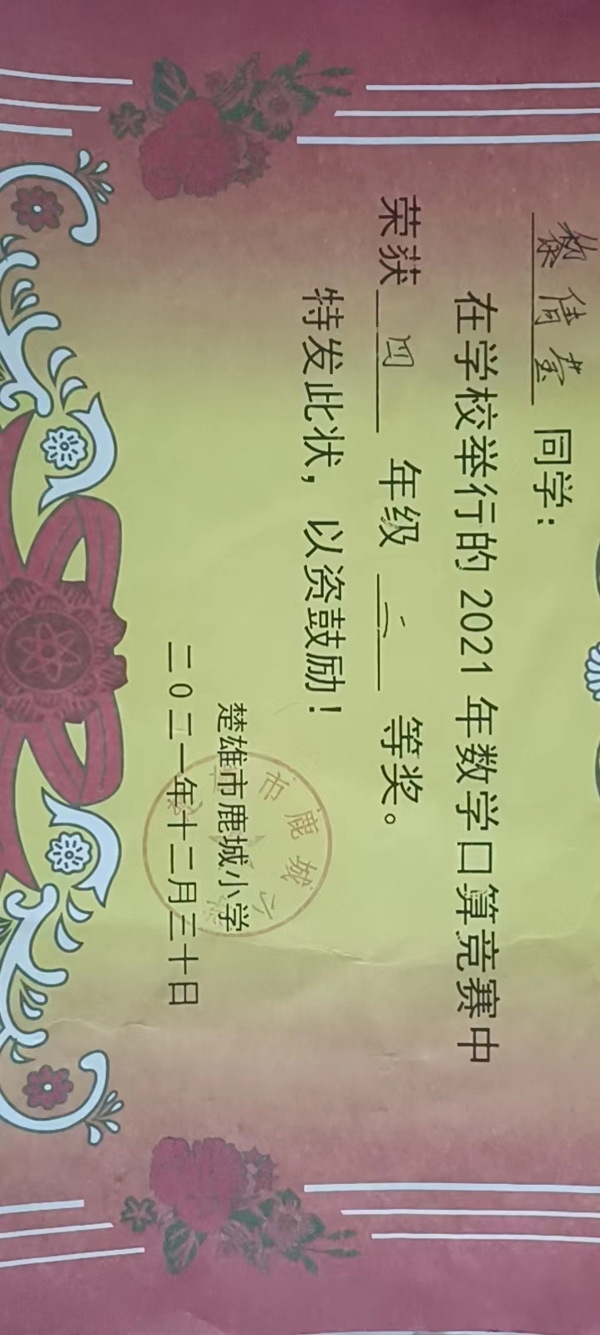 黎倩莹同学：
在学校举行的2021年数学口算竞赛中
荣获 四 年级 二 等奖。
特发此状，以资鼓励！
楚雄市鹿城小学
二0二一年十二月三十日
市鹿城小